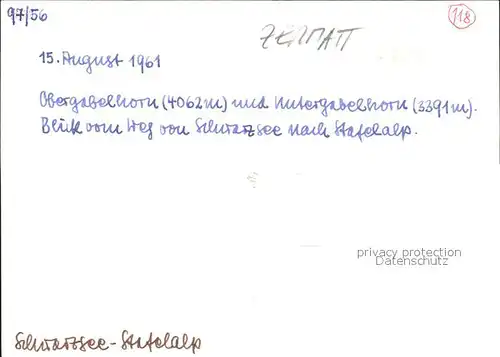 97/56
118
ZERMATT
15. August 1961
Obergabelhorn (4062m) und Untergabelhorn (3391m).
Blick vom Weg von Schwarzsee nach Stafelalp.
privacy protection
Datenschutz
Schwarzsee-Stafelalp